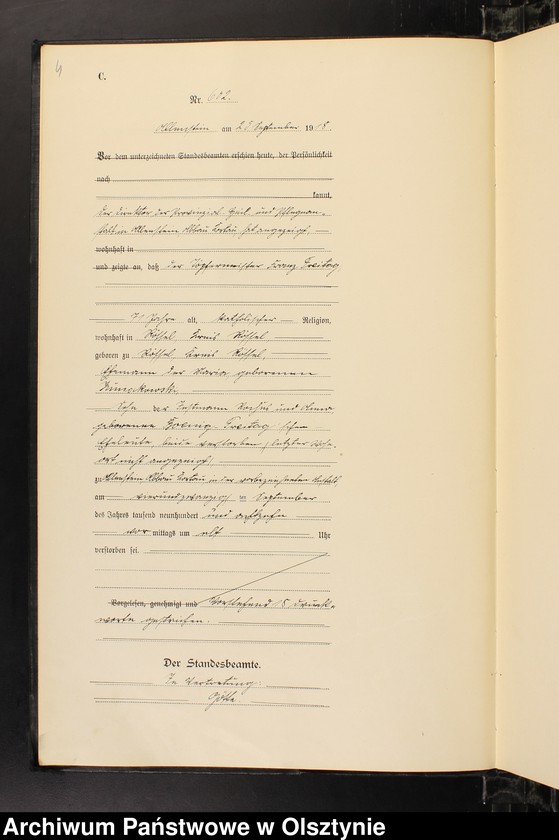 C.
Nr. 602.
Allenstein am 25 September 1918.
Vor dem unterzeichneten Standesbeamten erschien heute, der Persönlichkeit
nach
kannt,
Der Direktor der Provinzial Heil und Pflegean-
stalt in Allenstein Abbau Kortau hat angezeigt,
wohnhaft in
und zeigte an, daß der Töpfermeister Franz Freitag
Jahre alt, katholischer Religion,
wohnhaft in Rößel Kreis Rößel
geboren zu Rößel, Kreis Rößel,
Ehemann der Maria geborenen
Sohn der und Anna
geborene Freitag schen
Eheleute, beide verstorben, letzter Wohn-
ort nicht angezeigt,
zu Allenstein Abbau Kortau in der vorbezeichneten Anstalt
am vierundzwanzigsten September
des Jahres tausend neunhundert und achtzehn
vor mittags um elf Uhr
verstorben sei.
Vorgelesen, genehmigt und Vorstehend 15 Druck-
worte gestrichen.
Der Standesbeamte.
In Vertretung.
Archiwum Państwowe w Olsztynie